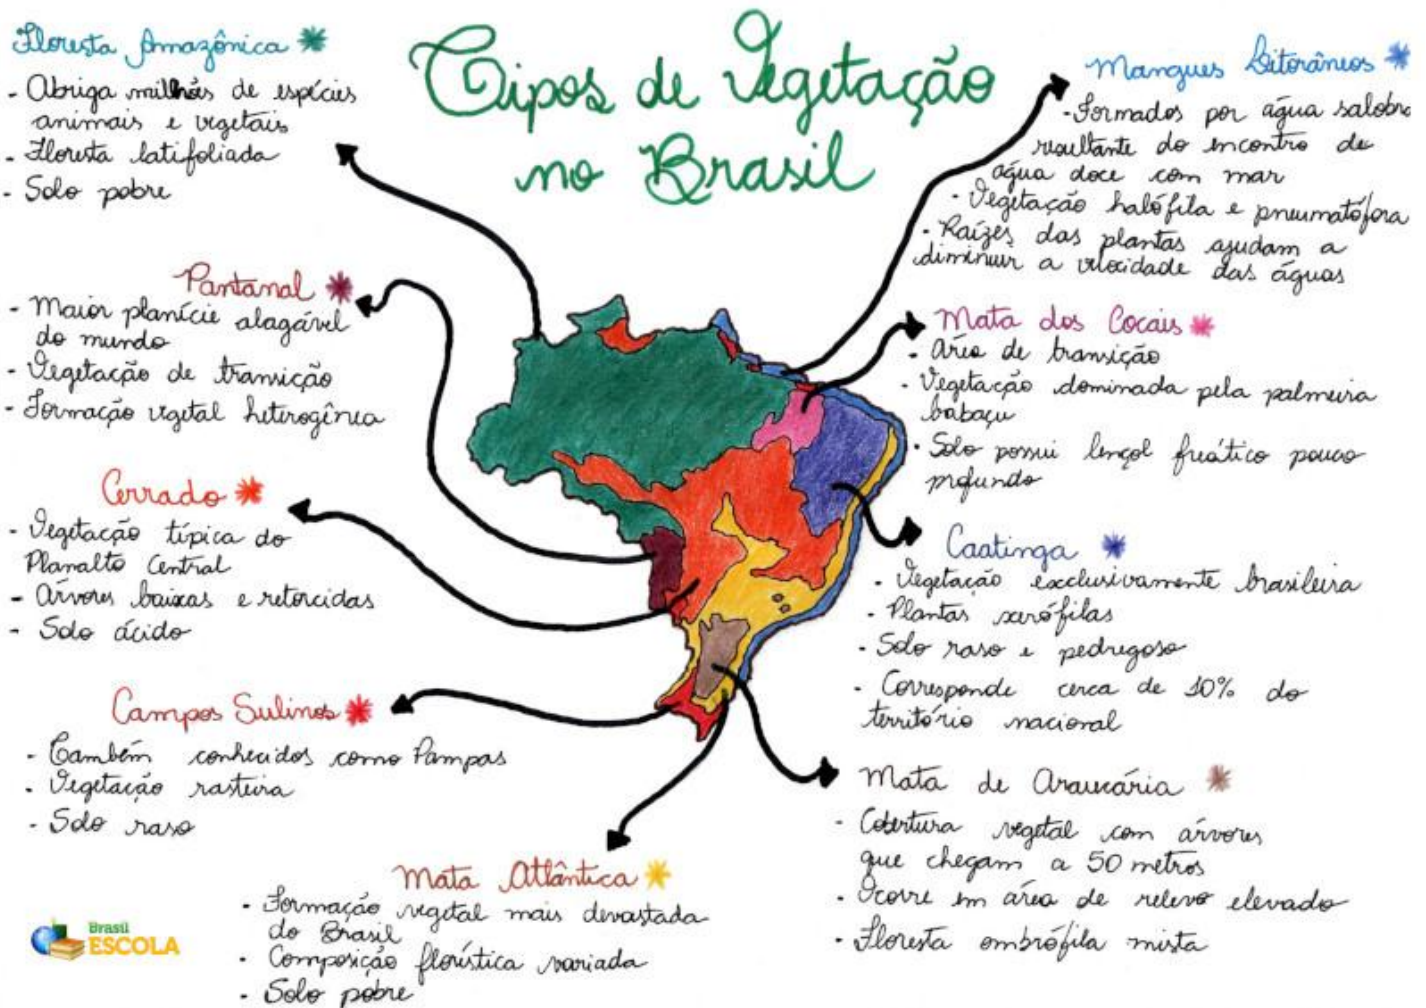 Tipos de Vegetação
no Brasil
Floresta Amazônica
- Abriga milhões de espécies
animais e vegetais
- Floresta latifoliada
- Solo pobre
Pantanal
- Maior planície alagável
do mundo
- Vegetação de transição
- Formação vegetal heterogênea
Cerrado
- Vegetação típica do
Planalto Central
- Árvores baixas e retorcidas
- Solo ácido
Campos Sulinos
- Também conhecidos como Pampas
- Vegetação rasteira
- Solo raso
Mata Atlântica
- Formação vegetal mais devastada
do Brasil
- Composição florística variada
- Solo pobre
Mangues Litorâneos
- Formados por água salobra
resultante do encontro de
água doce com mar
- Vegetação halófila e pneumatófora
- Raízes das plantas ajudam a
diminuir a velocidade das águas
Mata dos Cocais
- Área de transição
- Vegetação dominada pela palmeira
babaçu
- Solo possui lençol freático pouco
profundo
Caatinga
- Vegetação exclusivamente brasileira
- Plantas xerófilas
- Solo raso e pedregoso
- Corresponde cerca de 10% do
território nacional
Mata de Araucária
- Cobertura vegetal com árvores
que chegam a 50 metros
- Ocorre em área de relevo elevado
- Floresta ombrófila mista
Brasil
ESCOLA